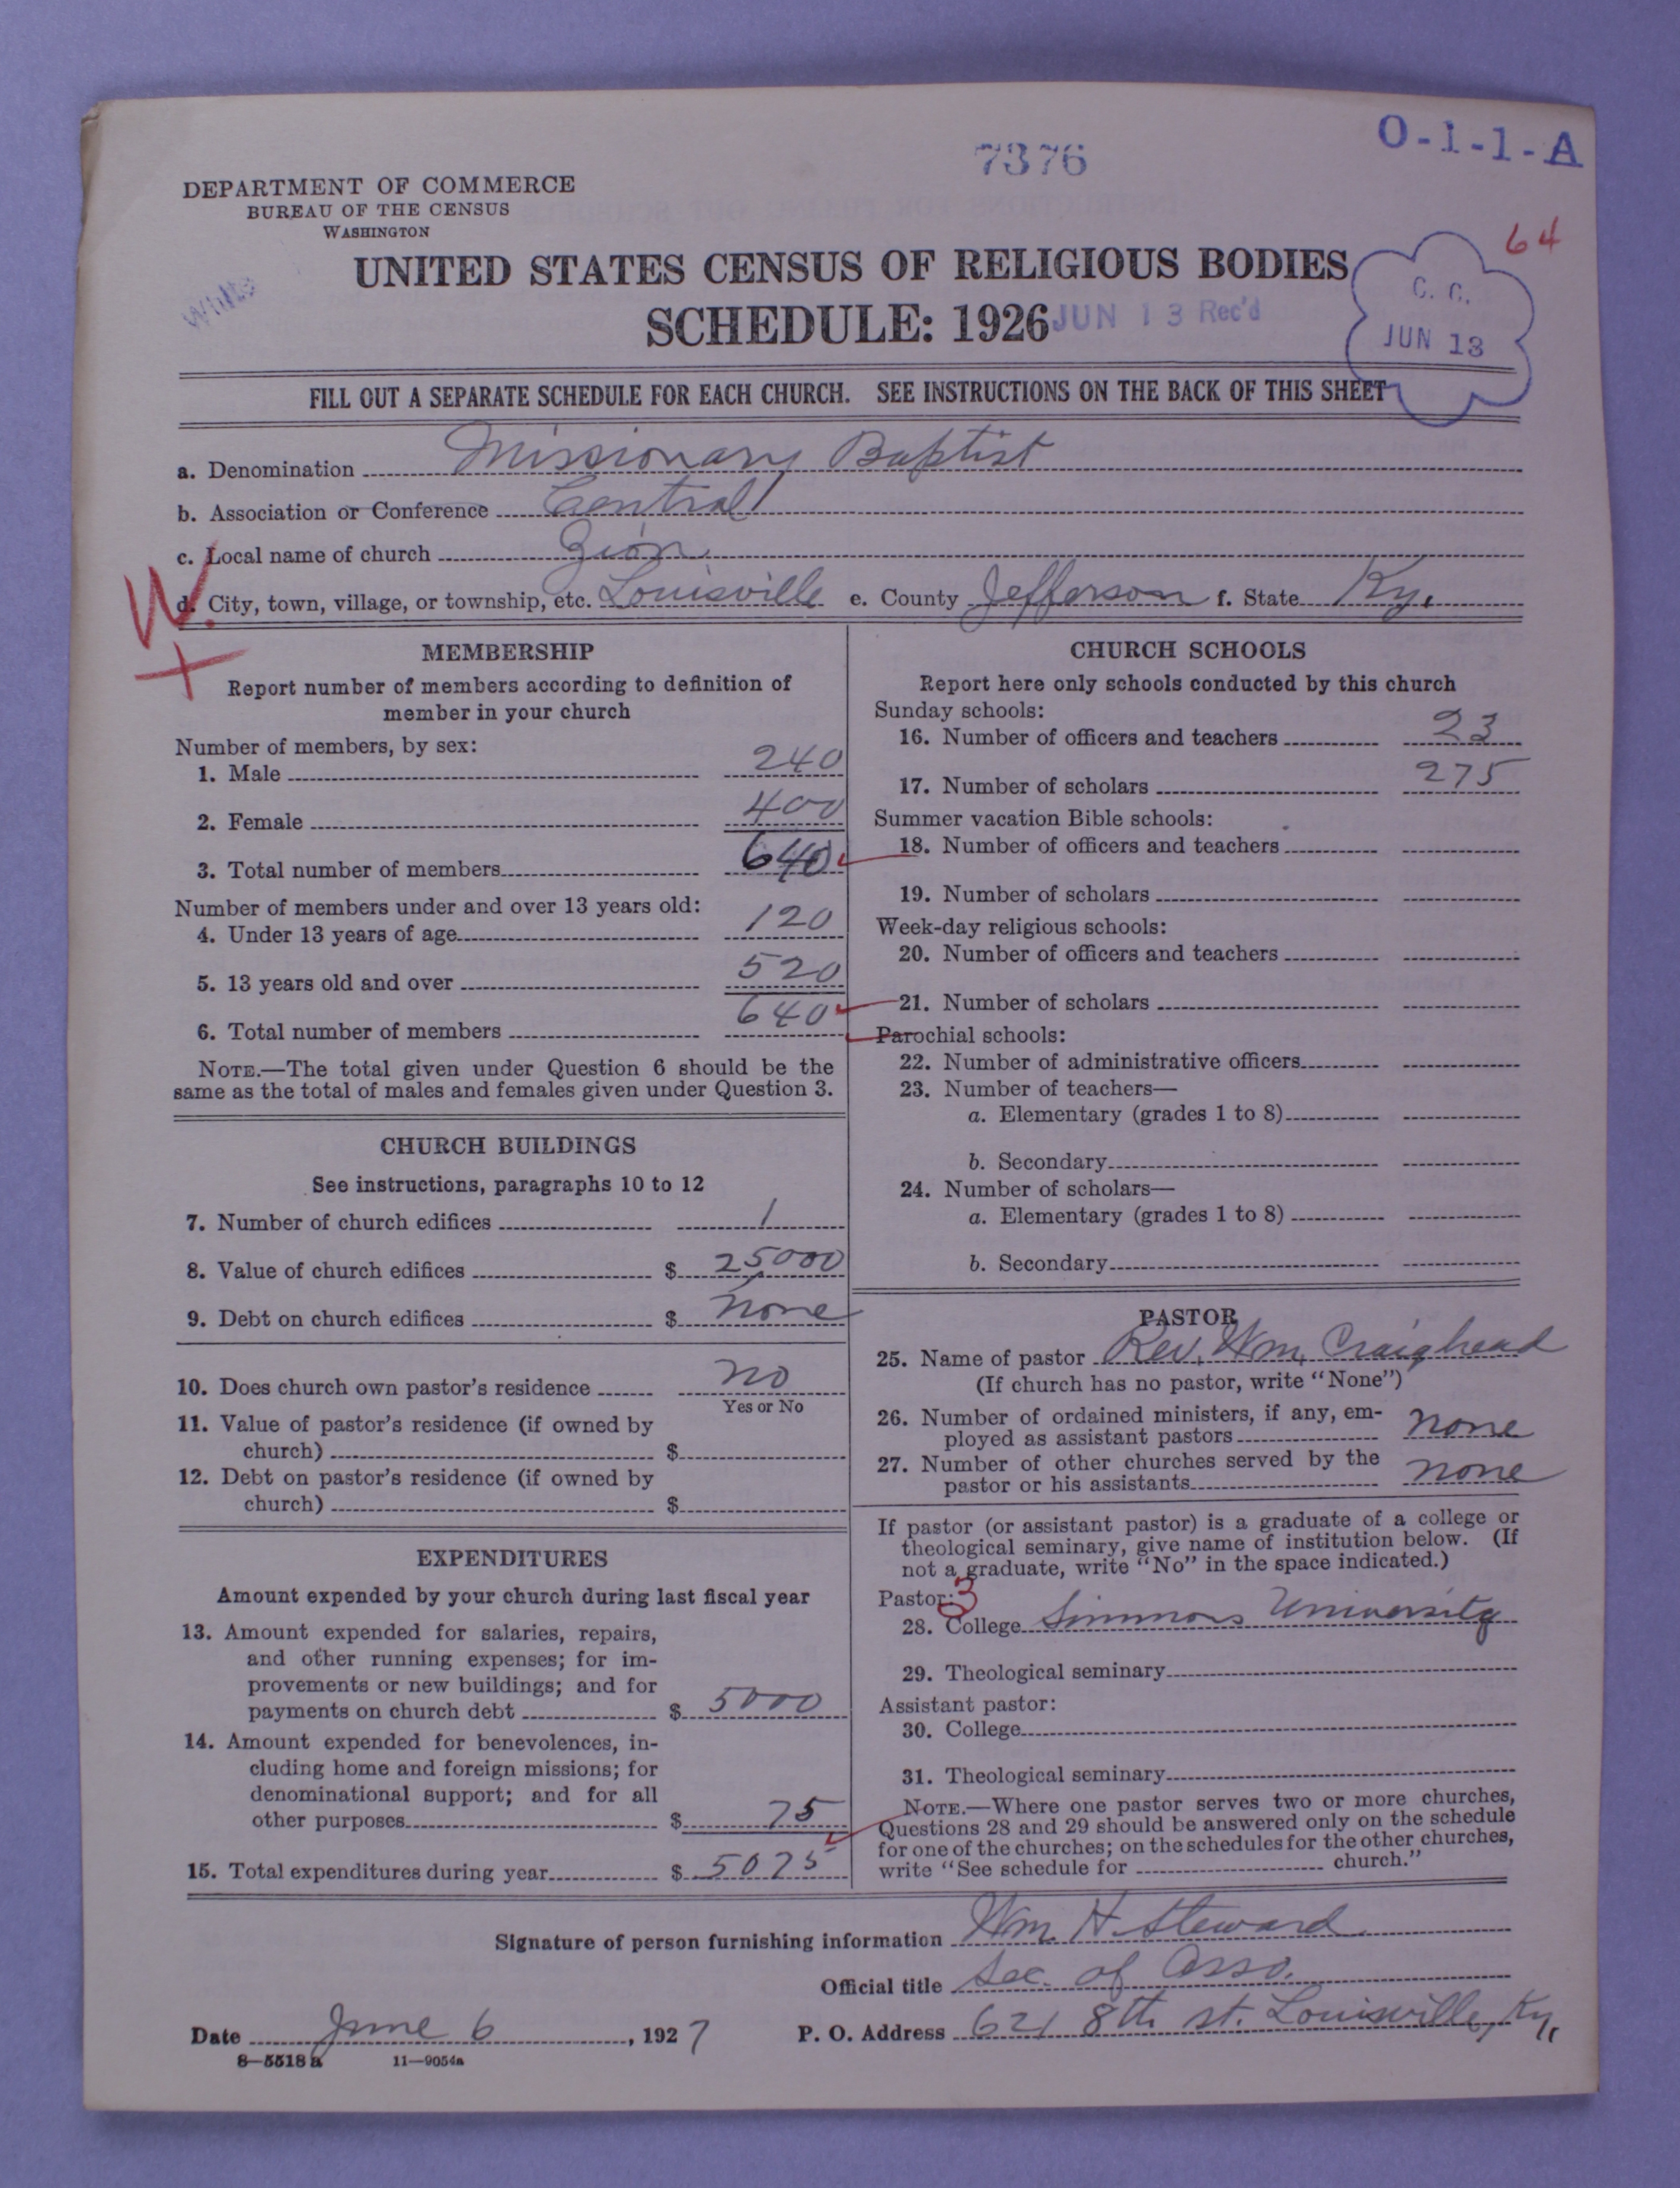 O-1-1-A
7376
DEPARTMENT OF COMMERCE
BUREAU OF THE CENSUS
WASHINGTON
64
UNITED STATES CENSUS OF RELIGIOUS BODIES
SCHEDULE: 1926
JUN 13 Rec'd
C. C.
JUN 13
FILL OUT A SEPARATE SCHEDULE FOR EACH CHURCH. SEE INSTRUCTIONS ON THE BACK OF THIS SHEET
a. Denomination Missionary Baptist
b. Association or Conference Central
c. Local name of church Zion
W.
d. City, town, village, or township, etc. Louisville e. County Jefferson f. State Ky.
MEMBERSHIP
Report number of members according to definition of
member in your church
Number of members, by sex:
1. Male 240
2. Female 400
3. Total number of members 640
Number of members under and over 13 years old:
4. Under 13 years of age 120
5. 13 years old and over 520
6. Total number of members 640
NOTE.—The total given under Question 6 should be the
same as the total of males and females given under Question 3.
CHURCH BUILDINGS
See instructions, paragraphs 10 to 12
7. Number of church edifices 1
8. Value of church edifices $ 25000
9. Debt on church edifices $ none
10. Does church own pastor's residence no
Yes or No
11. Value of pastor's residence (if owned by
church) $
12. Debt on pastor's residence (if owned by
church) $
EXPENDITURES
Amount expended by your church during last fiscal year
13. Amount expended for salaries, repairs,
and other running expenses; for im-
provements or new buildings; and for
payments on church debt $ 5000
14. Amount expended for benevolences, in-
cluding home and foreign missions; for
denominational support; and for all
other purposes $ 75
15. Total expenditures during year $ 5075
CHURCH SCHOOLS
Report here only schools conducted by this church
Sunday schools:
16. Number of officers and teachers 23
17. Number of scholars 275
Summer vacation Bible schools:
18. Number of officers and teachers
19. Number of scholars
Week-day religious schools:
20. Number of officers and teachers
21. Number of scholars
Parochial schools:
22. Number of administrative officers
23. Number of teachers—
a. Elementary (grades 1 to 8)
b. Secondary
24. Number of scholars—
a. Elementary (grades 1 to 8)
b. Secondary
PASTOR
25. Name of pastor Rev. Wm. Craighead
(If church has no pastor, write "None")
26. Number of ordained ministers, if any, em-
ployed as assistant pastors none
27. Number of other churches served by the
pastor or his assistants none
If pastor (or assistant pastor) is a graduate of a college or
theological seminary, give name of institution below. (If
not a graduate, write "No" in the space indicated.)
Pastor: 3
28. College Simmons University
29. Theological seminary
Assistant pastor:
30. College
31. Theological seminary
NOTE.—Where one pastor serves two or more churches,
Questions 28 and 29 should be answered only on the schedule
for one of the churches; on the schedules for the other churches,
write "See schedule for church."
Signature of person furnishing information Wm. H. Steward
Official title Sec. of Asso.
Date June 6, 1927 P. O. Address 621 8th st. Louisville, Ky.
8—5518a 11—9054a